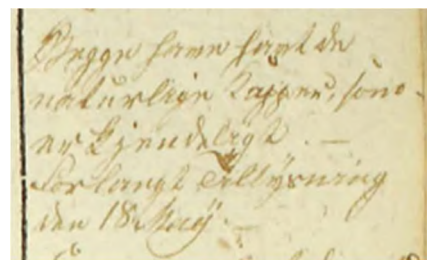 Begge have havt de
naturlige Kopper, som
er kjendeligt. —
Forlangt Tillysning
den 18 Maÿ. —